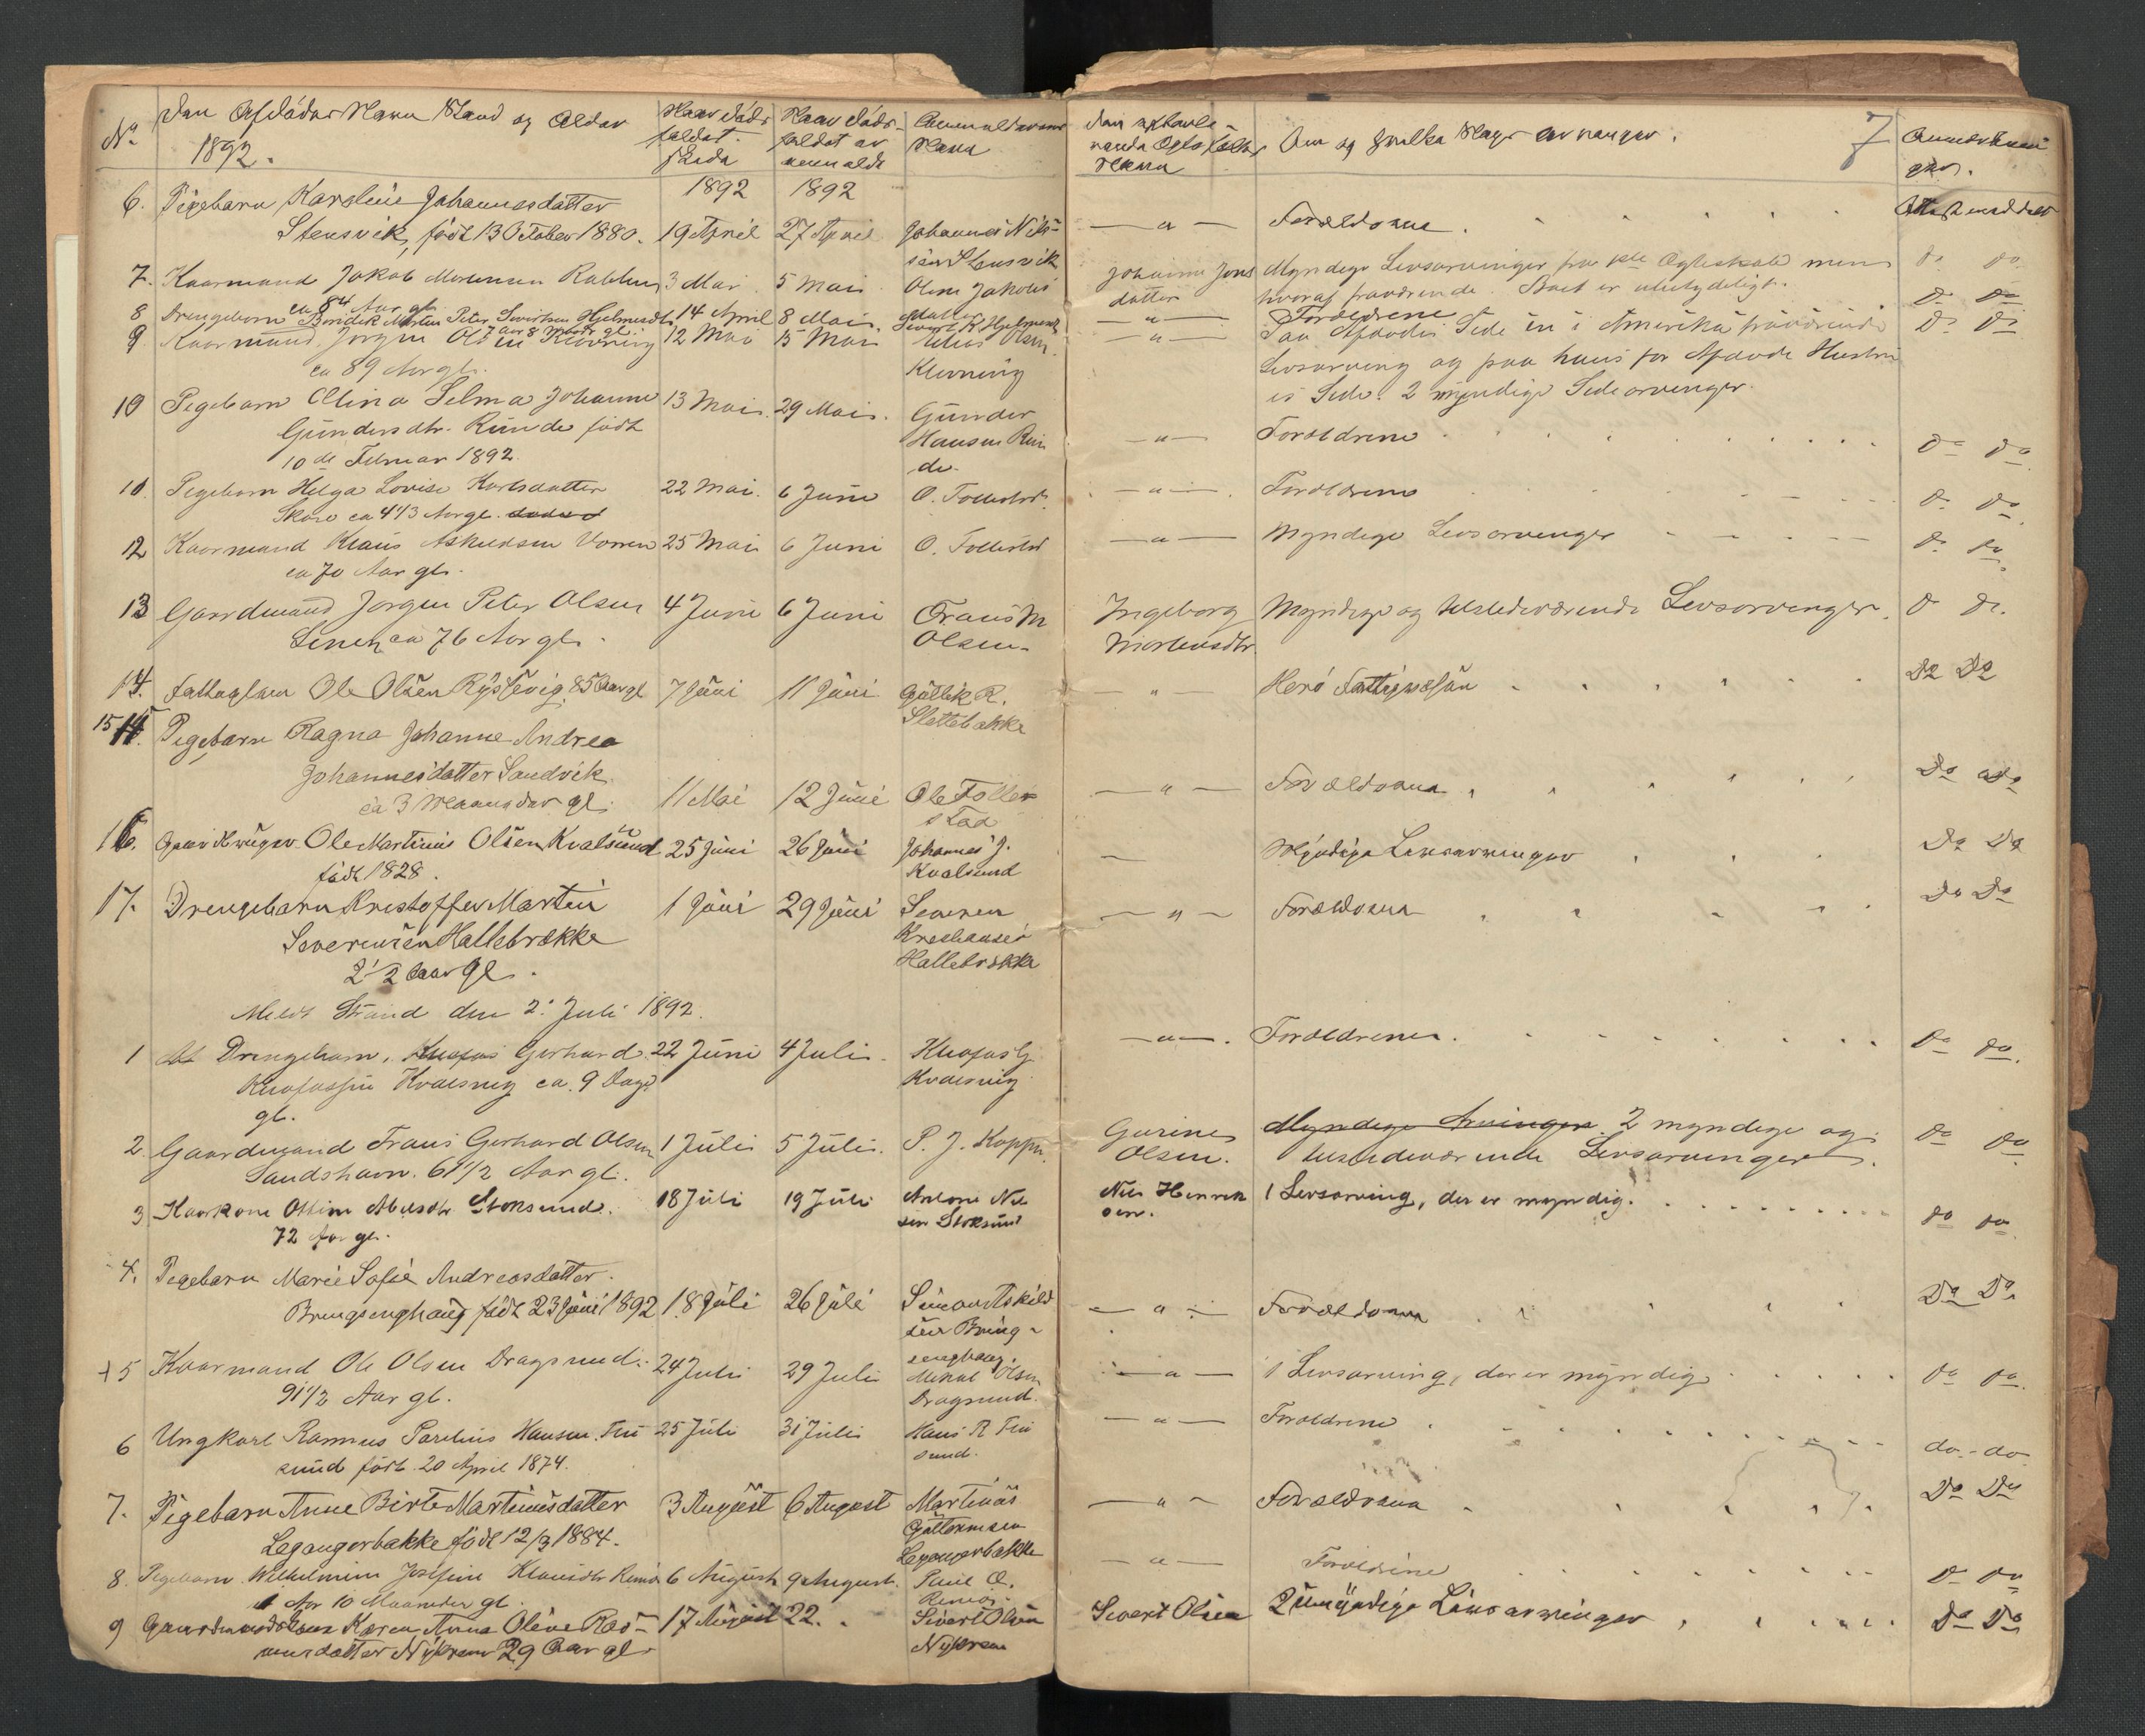 No
Den Afdødes Navn Stand og Alder
1892.
Naar døds
faldet
skede
Naar døds-
faldet er
anmeldt
Anmelderens
Navn
Den efterle-
vende Ægtefælles
Navn
Om og hvilke Slags Arvinger.
7
Anmærknin
ger.
1892
1892
6. Pigebarn Karoline Johannesdatter
Stensvik, født 13 October 1880.
19 April
27 April
Johannes Nils-
sen Stensvik
— " —
Forældrene.
Attest meddelt
7. Kaarmand Jakob Mortensen
ca 84 Aar gl.
3 Mai
5 Mai
Oline Jakobs
datter
Johanne Jons
datter
Myndige Livsarvinger fra 1ste Ægteskab men
hvoraf fraværende. Boet er ubetydeligt.
do do
8 Drengebarn Bendik Martin Peter Sivertsen Hjelmeseth
7 Aar 8 Mndr gl.
14 April
8 Mai.
Sivert K Hjelmeseth
— " —
Forældrene
do do
9. Kaarmand Jørgen Olsen Klevning
ca 89 Aar gl.
12 Mai
15 Mai
Olsen
Klevning
— " —
Paa Afdødes Side en i Amerika fraværende
Livsarving og paa hans før Afdøde Hustru
is Side. 2 myndige Sidearvinger.
do do
10 Pigebarn Olina Selma Johanne
Gundersdtr. Runde født
10de Februar 1892.
13 Mai.
29 Mai.
Gunder
Hansen Run
de.
— " —
Forældrene
do do
11. Pigebarn Helga Lovise Karlsdatter
Skare ca 4 1/3 Aar gl.
22 Mai.
6 Juni
O. Tollefsd.
— " —
Forældrene
do do
12 Kaarmand Klaus Askildsen Vorren
ca 70 Aar gl.
25 Mai
6 Juni
O. Follestad
— " —
Myndige Livsarvinger
do do
13 Gaardmand Jørgen Peter Olsen
ca 76 Aar gl.
4 Juni
6 Juni
Frans M
Olsen.
Ingeborg
Mortensdtr
Myndige og tilstedeværende Livsarvinger.
do do.
14. Fattiglem Ole Olsen Røyssevig, 85 Aar gl
7 Juni
11 Juni
Gullik R.
Slettebakke
— " —
Herø Fattigvæsen
Do Do
15 Pigebarn Ragna Johanne Andrea
Johannesdatter Sandvik
ca 3 Maaneder gl.
11 Mai
12 Juni
Ole Folle
stad
— " —
Forældrene
Do Do
16. Gaardbruger Ole Martinus Olsen Kvalsund
født 1828.
25 Juni
26 Juni
Johannes J.
Kvalsund
—
Myndige Livsarvinger
Do Do
17. Drengebarn Kristoffer Martin
Severinsen Hallebrække
2 1/2 Aar gl.
1 Juni
29 Juni
Severen
Hallebrekke
— " —
Forældrene
Do Do
Meldt Strand den 2. Juli 1892.
1 Drengebarn, Gerhard
Kvalsvig ca. 9 Dage
gl.
22 Juni
4 Juli.
Kvalsvig
— " —.
Forældrene.
do do.
2. Gaardmand Frans Gerhard Olsen
Sandshavn. 61 1/2 Aar gl.
1 Juli
5 Juli.
P. J. Koppen
Gurine
Olsen.
Myndige Arvinger 2 myndige og
tilstedeværende Livsarvinger.
do do
3 Kaarkone Oline Stoksund.
72 Aar gl.
18 Juli
19 Juli
Antone Nil
sen Stoksund
Nils Henrik
sen.
1 Livsarving, der er myndig.
do do
4. Pigebarn Marie Sofie Andreasdatter
Bringsinghaug født 23 Juni 1892
18 Juli
26 Juli
Simon Askild
sen Bring-
singhaug.
— " —
Forældrene
Do Do.
5 Kaarmand Ole Olsen Dragsund.
91 1/2 Aar gl.
24 Juli
29 Juli
Mikal Olsen
Dragsund.
— " —
1 Livsarving, der er myndig
do do.
6 Ungkarl Rasmus Parelius Hansen. Tru
sund født 20 April 1874.
25 Juli
31 Juli
Hans R Tru
sund.
— " —
Forældrene
do - do
7. Pigebarn Anne Birte Martinusdatter
Legangerbakke født 12/3 1884.
3 August
6 August
Martinus
Guttormsen
Legangerbakke
— " —
Forældrene
Do Do
8. Pigebarn Wilhelmine Josefine Klausdtr Remø
1 Aar 10 Maaneder gl.
6 August
9 August.
Paul O.
Remøy.
— " —
Forældrene
do do
9 Karen Anna Oline Ras-
musdatter Nykrem 29 Aar gl
17 August
22.
Sivert Olsen
Nykrem
Sivert Olsen
2 umyndige Livsarvinger
Do Do